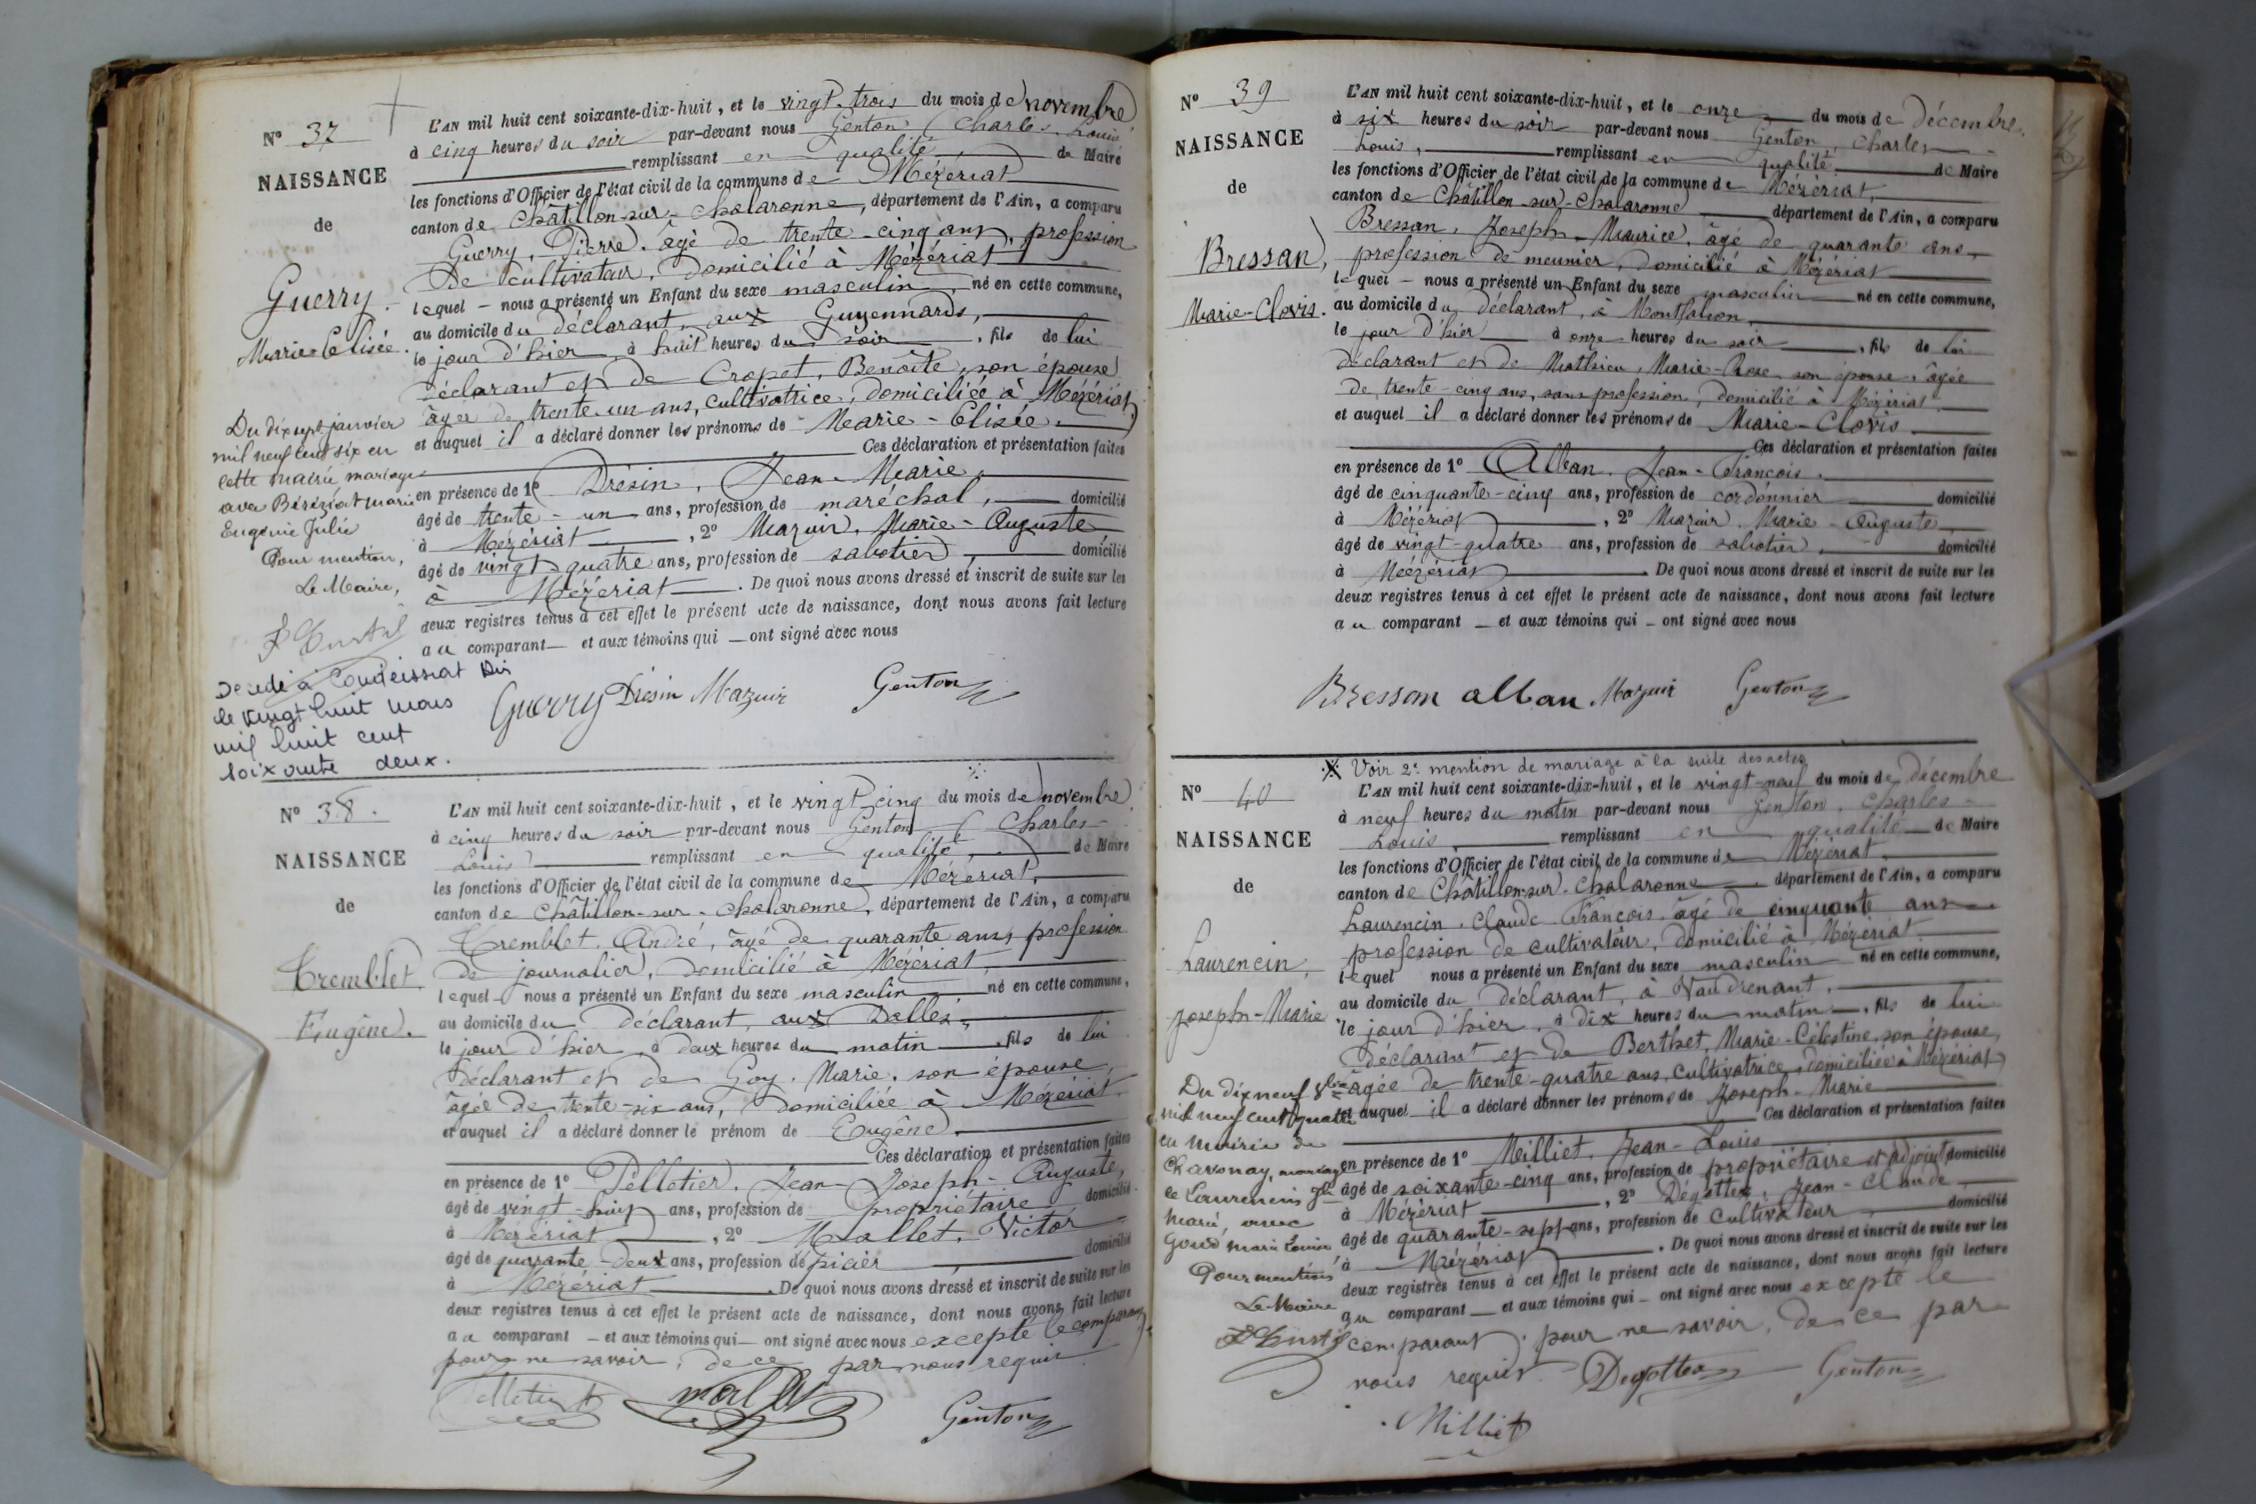 N° 37
NAISSANCE
de
Guerry
Marie-Elisée
L'AN mil huit cent soixante-dix-huit, et le vingt-trois du mois de novembre
à cinq heures du soir par-devant nous Genton, Charles-Louis
remplissant en qualité de Maire
les fonctions d'Officier de l'état civil de la commune de Mézériat
canton de Châtillon-sur-Chalaronne, département de l'Ain, a comparu
Guerry, Pierre, âgé de trente-cinq ans, profession
de cultivateur, domicilié à Mézériat
lequel nous a présenté un Enfant du sexe masculin, né en cette commune,
au domicile du déclarant, aux Guyennards,
le jour d'hier à huit heures du soir, fils de lui
déclarant et de Cropet, Benoîte, son épouse
âgée de trente-un ans, cultivatrice, domiciliée à Mézériat,
et auquel il a déclaré donner les prénoms de Marie-Elisée.
Ces déclaration et présentation faites
en présence de 1° Drésin, Jean-Marie,
âgé de trente-un ans, profession de maréchal, domicilié
à Mézériat, 2° Mazuir, Marie-Auguste,
âgé de vingt-quatre ans, profession de sabotier, domicilié
à Mézériat. De quoi nous avons dressé et inscrit de suite sur les
deux registres tenus à cet effet le présent acte de naissance, dont nous avons fait lecture
au comparant et aux témoins qui ont signé avec nous
Guerry Drésin Mazuir Genton
Du dix sept janvier
mil neuf cent six en
cette mairie mariage
avec Béréziat Marie
Eugénie Julie
Pour mention,
Le Maire,
Décédé à Condeissiat Ain
le vingt huit mars
mil huit cent
soixante deux.
N° 38.
NAISSANCE
de
Tremblet
Eugène.
L'AN mil huit cent soixante-dix-huit, et le vingt-cinq du mois de novembre
à cinq heures du soir par-devant nous Genton, Charles-
Louis remplissant en qualité, de Maire
les fonctions d'Officier de l'état civil de la commune de Mézériat,
canton de Châtillon-sur-Chalaronne, département de l'Ain, a comparu
Tremblet, André, âgé de quarante ans, profession
de journalier, domicilié à Mézériat,
lequel nous a présenté un Enfant du sexe masculin né en cette commune,
au domicile du déclarant, aux Dalles,
le jour d'hier, à deux heures du matin, fils de lui
déclarant et de Goy, Marie, son épouse,
âgée de trente-six ans, domiciliée à Mézériat.
et auquel il a déclaré donner le prénom de Eugène.
Ces déclaration et présentation faites
en présence de 1° Pelletier, Jean-Joseph-Auguste,
âgé de vingt-huit ans, profession de propriétaire domicilié
à Mézériat, 2° Mallet, Victor
âgé de quarante-deux ans, profession d'épicier domicilié
à Mézériat. De quoi nous avons dressé et inscrit de suite sur les
deux registres tenus à cet effet le présent acte de naissance, dont nous avons fait lecture
au comparant et aux témoins qui ont signé avec nous excepté le comparant,
pour ne savoir, de ce par nous requis.
Pelletier Mallet Genton
N° 39
NAISSANCE
de
Bressan,
Marie-Clovis.
L'AN mil huit cent soixante-dix-huit, et le onze du mois de décembre.
à six heures du soir par-devant nous Genton, Charles-
Louis, remplissant en qualité de Maire
les fonctions d'Officier de l'état civil de la commune de Mézériat,
canton de Châtillon-sur-Chalaronne département de l'Ain, a comparu
Bressan, Joseph-Maurice, âgé de quarante ans,
profession de meunier, domicilié à Mézériat
lequel nous a présenté un Enfant du sexe masculin né en cette commune,
au domicile du déclarant, à Montfalcon,
le jour d'hier à onze heures du soir, fils de lui
déclarant et de Mathieu, Marie-Rose, son épouse, âgée
de trente-cinq ans, sans profession, domicilié à Mézériat.
et auquel il a déclaré donner les prénoms de Marie-Clovis
Ces déclaration et présentation faites
en présence de 1° Alban, Jean-François.
âgé de cinquante-cinq ans, profession de cordonnier domicilié
à Mézériat, 2° Mazuir, Marie-Auguste,
âgé de vingt-quatre ans, profession de sabotier, domicilié
à Mézériat. De quoi nous avons dressé et inscrit de suite sur les
deux registres tenus à cet effet le présent acte de naissance, dont nous avons fait lecture
au comparant et aux témoins qui ont signé avec nous
Bressan alban Mazuir Genton
Voir 2e mention de mariage à la suite des actes
N° 40
NAISSANCE
de
Laurencin,
Joseph-Marie
L'AN mil huit cent soixante-dix-huit, et le vingt-neuf du mois de décembre
à neuf heures du matin par-devant nous Genton, Charles-
Louis, remplissant en qualité de Maire
les fonctions d'Officier de l'état civil de la commune de Mézériat,
canton de Châtillon-sur-Chalaronne, département de l'Ain, a comparu
Laurencin, Claude-François, âgé de cinquante ans
profession de cultivateur, domicilié à Mézériat
lequel nous a présenté un Enfant du sexe masculin né en cette commune,
au domicile du déclarant, à Vaudrenant,
le jour d'hier, à dix heures du matin, fils de lui
déclarant et de Berthet, Marie-Célestine, son épouse,
âgée de trente-quatre ans, cultivatrice, domiciliée à Mézériat
et auquel il a déclaré donner les prénoms de Joseph-Marie
Ces déclaration et présentation faites
en présence de 1° Milliet, Jean-Louis
âgé de soixante-cinq ans, profession de propriétaire et adjoint domicilié
à Mézériat, 2° Dégottex, Jean-Claude,
âgé de quarante-sept ans, profession de cultivateur domicilié
à Mézériat. De quoi nous avons dressé et inscrit de suite sur les
deux registres tenus à cet effet le présent acte de naissance, dont nous avons fait lecture
au comparant et aux témoins qui ont signé avec nous excepté le
comparant, pour ne savoir, de ce par
nous requis. Degottex Genton
Milliet
Du dix neuf 8bre
mil neuf cent quatre
en mairie de
Chavonay, mariage
de Laurencin
Marie, avec
Marie Louise
Pour mention
Le Maire